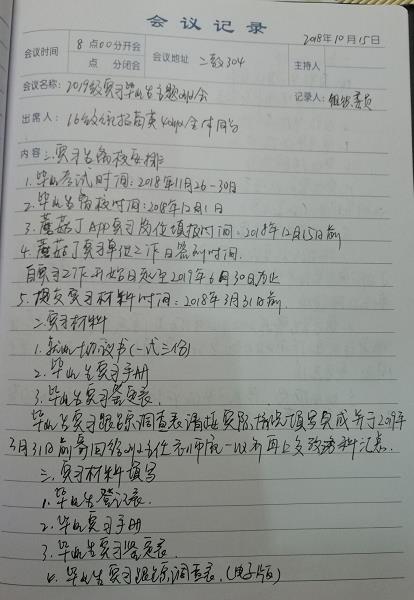 会议记录
2018年10月15日
会议时间 8点00分开会 点 分闭会 会议地址 二教304 主持人
会议名称: 2019级实习毕业生主题 会
记录人: 组织委员
出席人: 16级 招商英 全体同学
内容 一、实习生离校安排
1. 毕业考试时间: 2018年11月26-30日
2. 毕业生离校时间: 2018年12月1日
3. 蘑菇丁APP实习岗位填报时间: 2018年12月15日前
4. 蘑菇丁实习单位工作日签到时间.
自实习工作开始日起至2019年6月30日为止
5. 提交实习材料时间: 2018年3月31日前
二、实习材料
1. 就业协议书(一式三份)
2. 毕业生实习手册
3. 毕业生实习鉴定表.
毕业生实习跟踪调查表请按实际情况填写完成并于2019年
3月31日前寄回给班主任 老师 一以备再上交 资料汇总.
三、实习材料填写
1. 毕业生登记表.
2. 毕业实习手册
3. 毕业生实习鉴定表.
4. 毕业生实习跟踪调查表. (电子版)